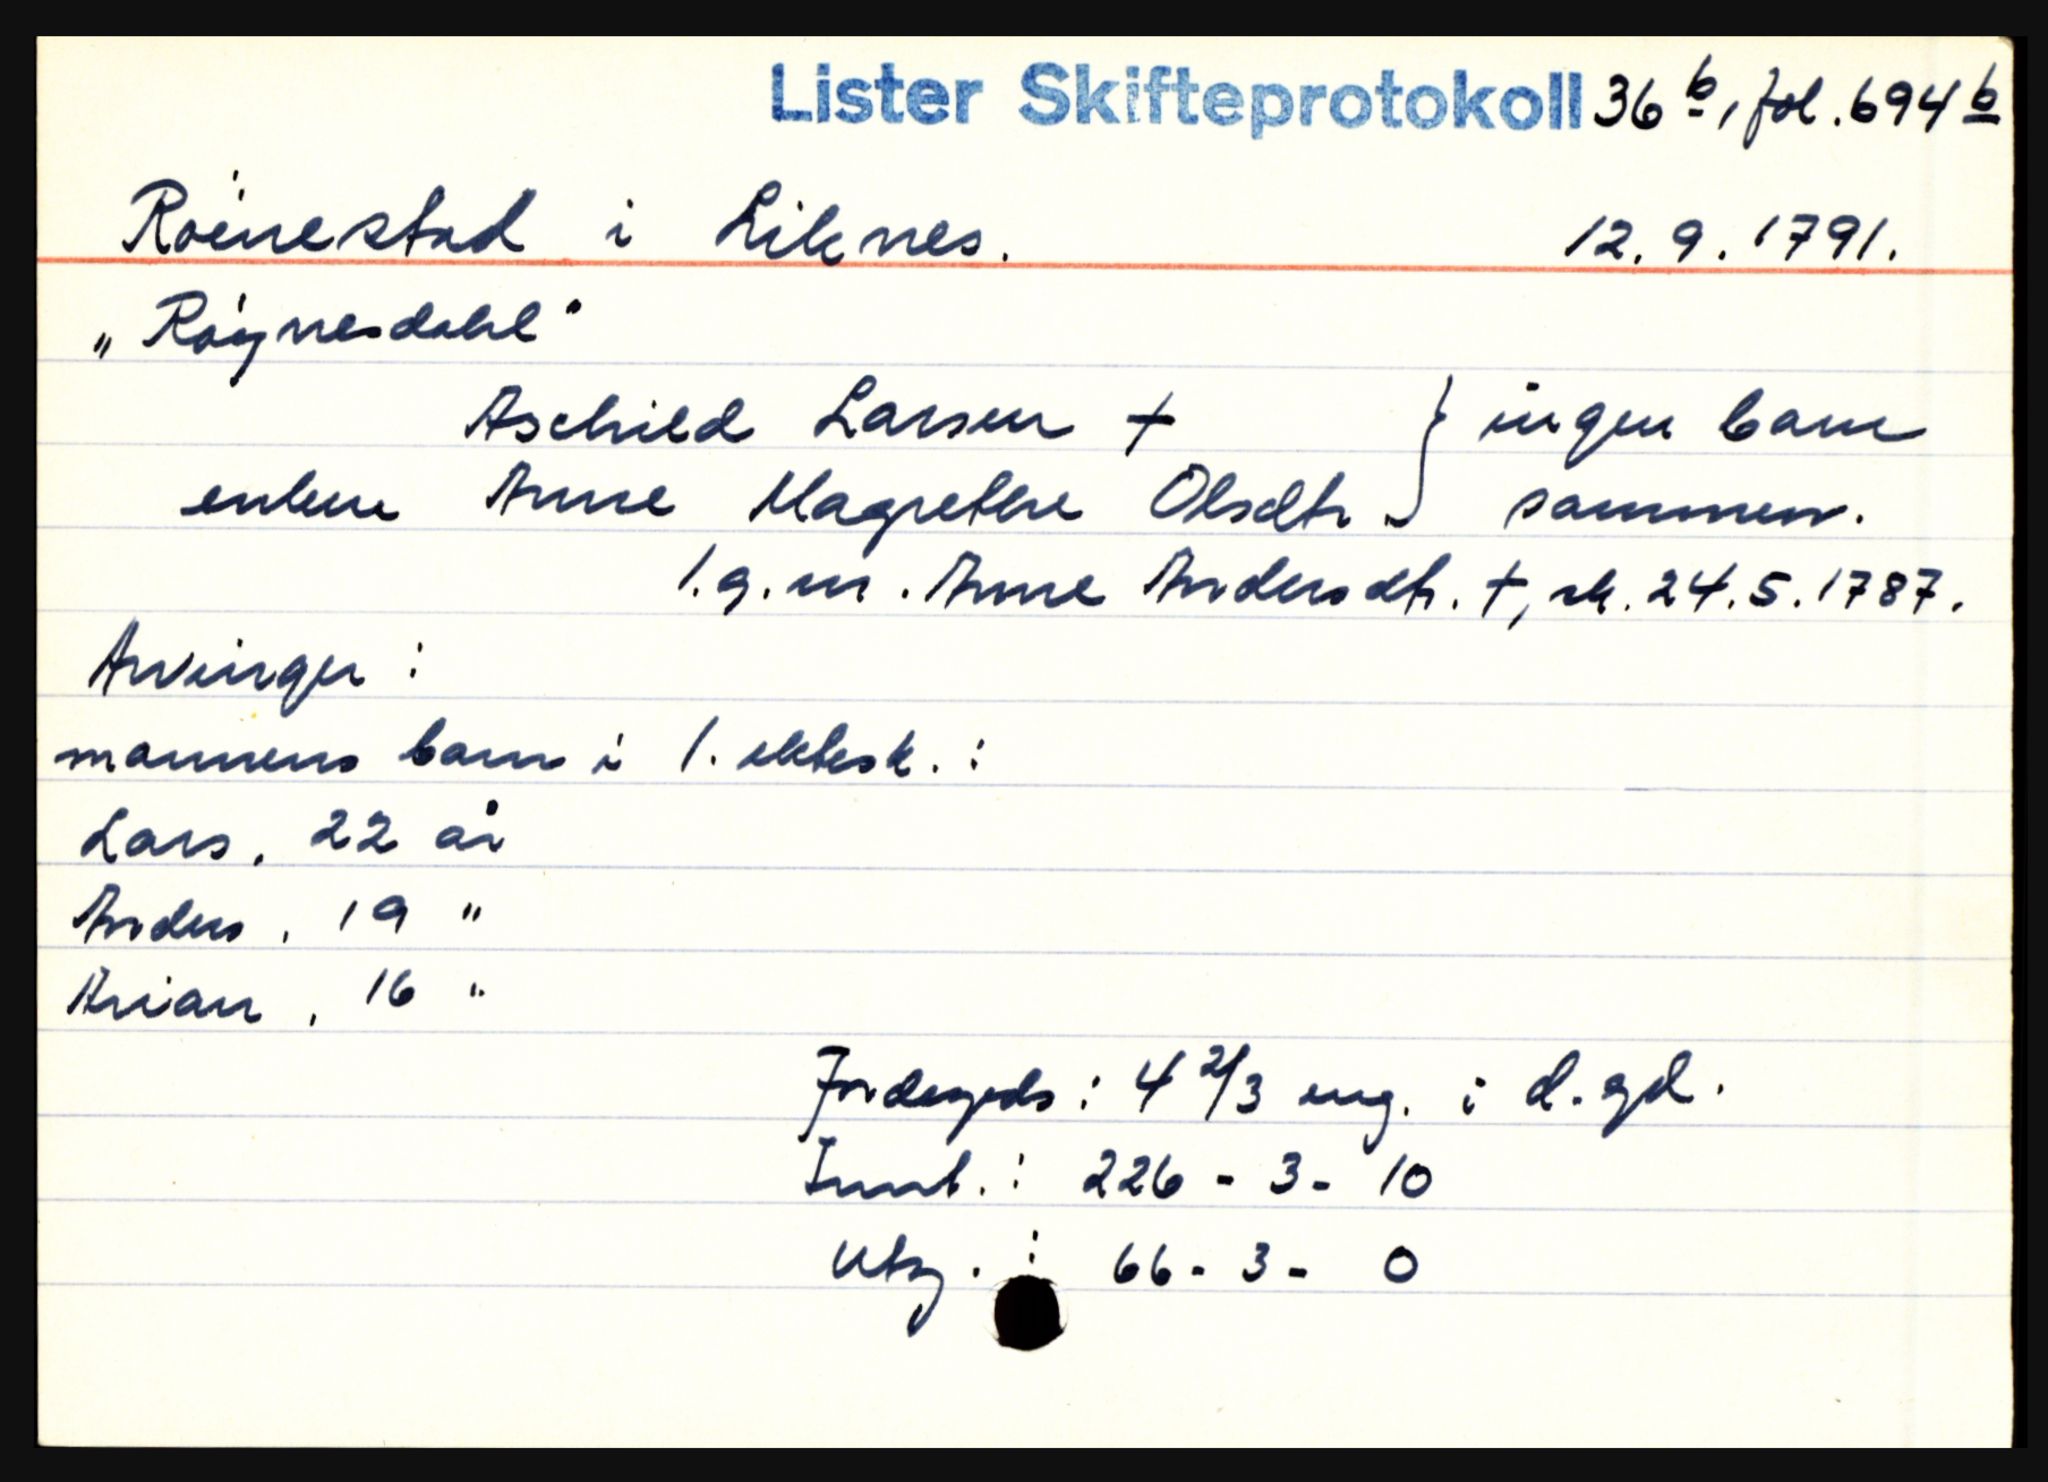 Lister Skifteprotokoll 36 b, fol. 694 b
Röinestad i Liknes. 12. 9. 1791.
„Röÿnesdahl"
Aschild Larsen † } ingen barn
enken Anne Magrethe Olsdtr. } sammen.
1. g. m. Anne Andersdtr. †, sk. 24. 5. 1787.
Arvinger :
mannens barn i 1. ektesk. :
Lars, 22 år
Anders, 19 "
Arian, 16 "
Jordegods : 4 2/3 eng. i d. gd.
Innt. : 226 - 3 - 10
Utg. : 66 - 3 - 0